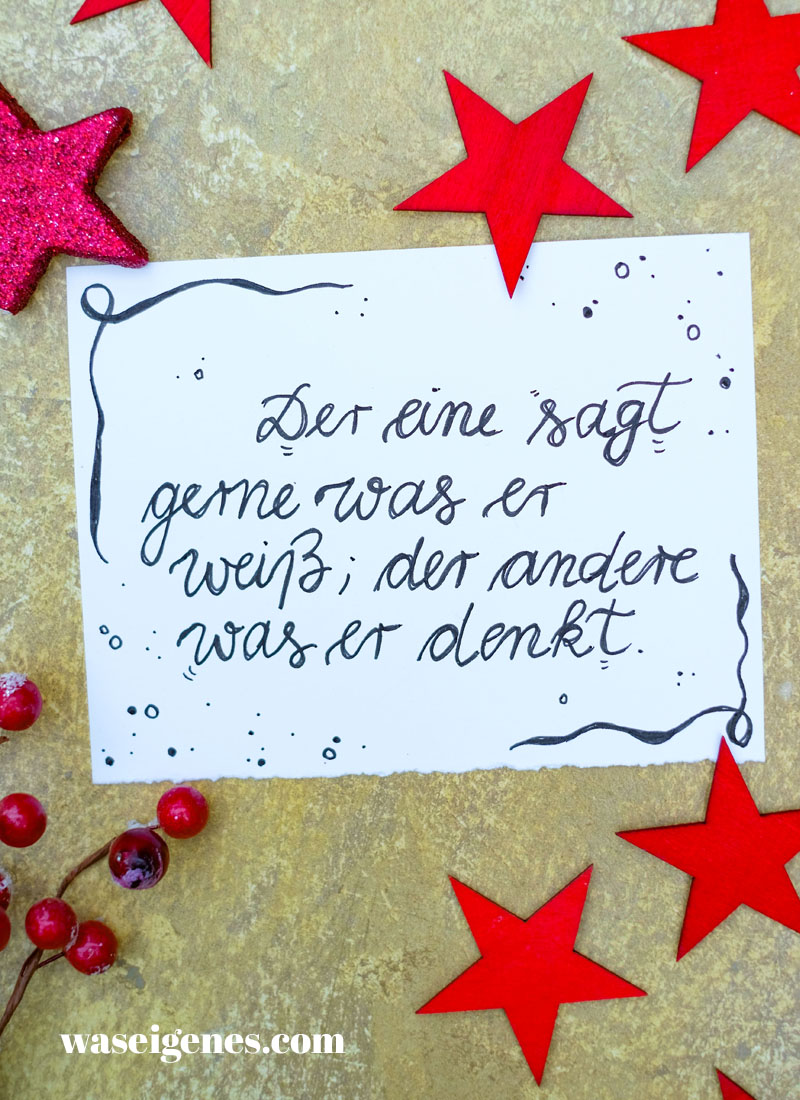 Der eine sagt
gerne was er
weiß; der andere
was er denkt.
waseigenes.com